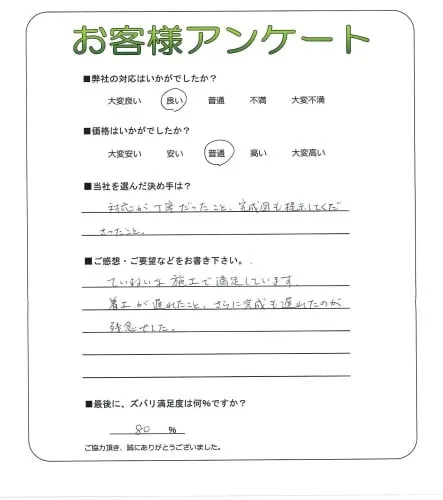 お客様アンケート
■弊社の対応はいかがでしたか？
大変良い 良い 普通 不満 大変不満
■価格はいかがでしたか？
大変安い 安い 普通 高い 大変高い
■当社を選んだ決め手は？
対応が丁寧だったこと、完成図も提示してくだ
さったこと。
■ご感想・ご要望などをお書き下さい。
ていねいな施工で満足しています。
着工が遅れたこと、さらに完成も遅れたのが
残念でした。
■最後に、ズバリ満足度は何%ですか？
80 %
ご協力頂き、誠にありがとうございました。